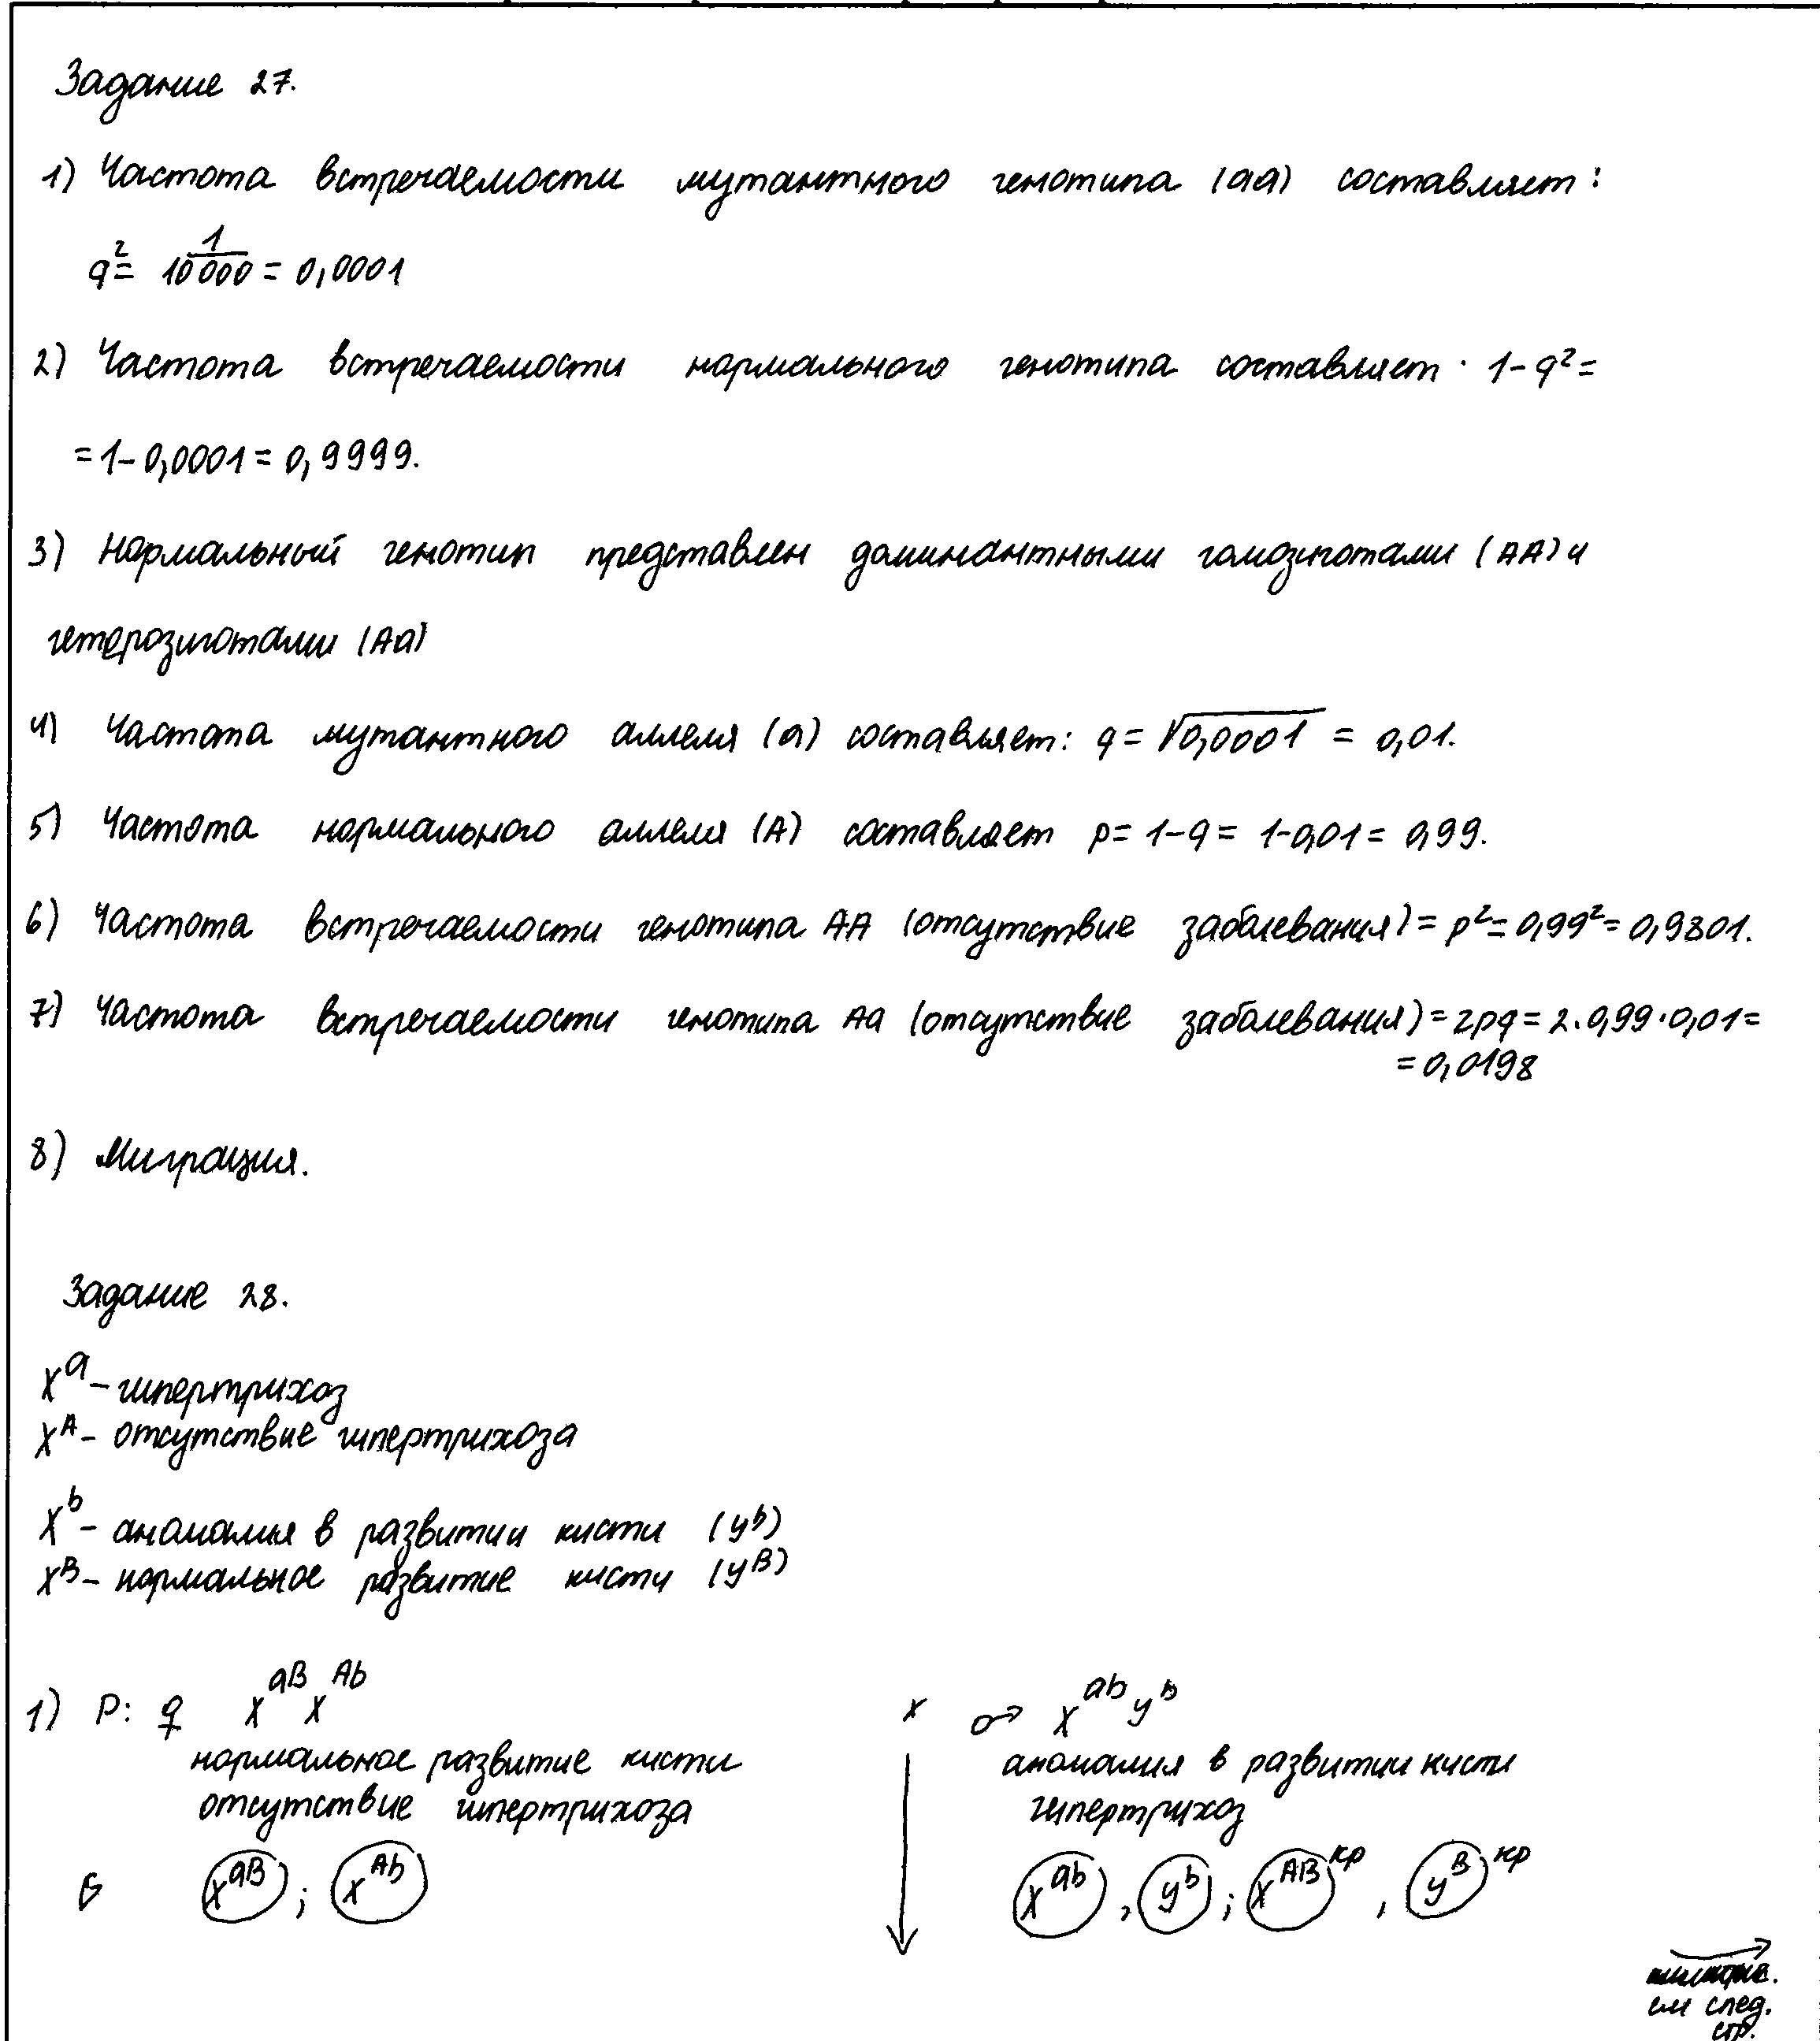 Задание 27.
1) Частота встречаемости мутантного генотипа (aa) составляет:
q² = 1/10 000 = 0,0001
2) Частота встречаемости нормального генотипа составляет · 1-q² =
= 1-0,0001 = 0,9999.
3) Нормальный генотип представлен доминантными гомозиготами (AA) и
гетерозиготами (Aa)
4) Частота мутантного аллеля (a) составляет: q = √0,0001 = 0,01.
5) Частота нормального аллеля (A) составляет p = 1-q = 1-0,01 = 0,99.
6) Частота встречаемости генотипа AA (отсутствие заболевания) = p² = 0,99² = 0,9801.
7) Частота встречаемости генотипа Aa (отсутствие заболевания) = 2pq = 2·0,99·0,01 =
= 0,0198
8) Миграция.
Задание 28.
Xᵃ - гипертрихоз
Xᴬ - отсутствие гипертрихоза
Xᵇ - аномалия в развитии кисти (yᵇ)
Xᴮ - нормальное развитие кисти (yᴮ)
1) P: ♀ XᵃᴮXᴬᵇ x ♂ Xᵃᵇyᵇ
нормальное развитие кисти аномалия в развитии кисти
отсутствие гипертрихоза гипертрихоз
G Xᵃᴮ; Xᴬᵇ Xᵃᵇ, yᵇ; Xᴬᴮ кр, yᴮ кр
см след.
стр.